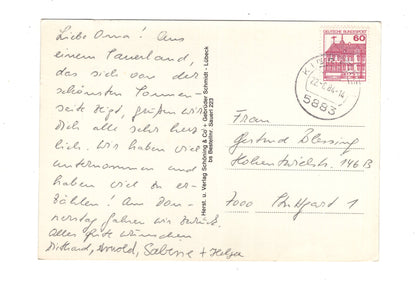 Liebe Oma! Aus
einem Sauerland,
das sich von der
schönsten Sonnen-
seite zeigt, grüßen wir
Dich alle sehr herz-
lich. Wir haben viel
unternommen und
haben viel zu er-
zählen! Am Don-
nerstag fahren wir zurück.
Alles gute wünschen
Arnold, Sabine + Helga
Herst. u. Verlag Schöning & Co + Gebrüder Schmidt · Lübeck
Sauerl 223
DEUTSCHE BUNDESPOST
60
5883
Frau
Gertrud Blessing
Hohentwielstr. 146 B
7000 Stuttgart 1